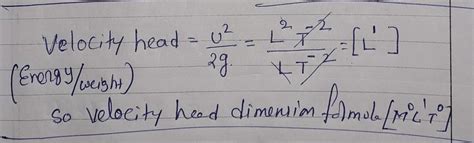 Velocity head = v²/2g = L² T⁻²/L T⁻² = [L¹]
(Energy/weight)
so velocity head dimension formula [M⁰L¹T⁰]